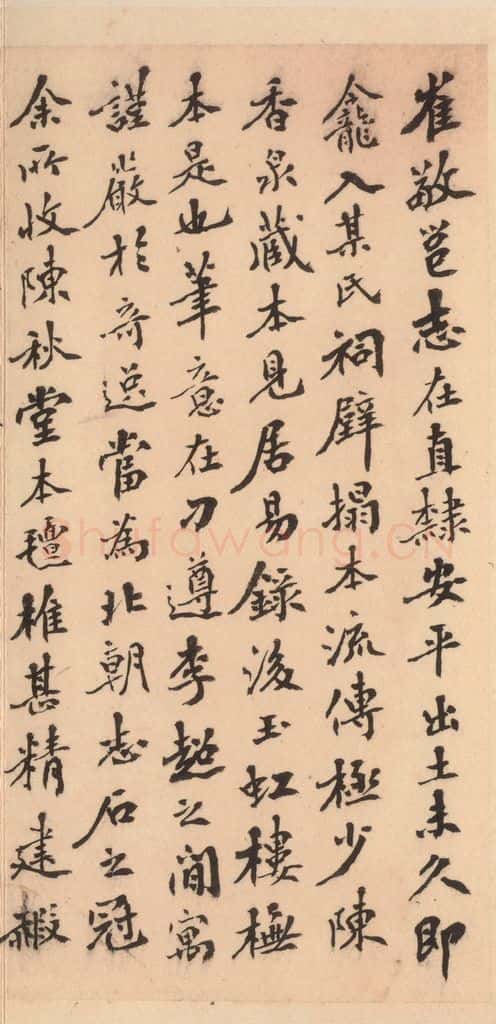 崔敬邕志在直隸安平出土未久即
龕入某氏祠壁搨本流傳極少陳
香泉藏本見居易錄後玉虹樓橅
本是也筆意在刀遵李超之間寓
謹嚴於奇逸當為北朝志石之冠
余所收陳秋堂本氊椎甚精建緞
shufawang.CN